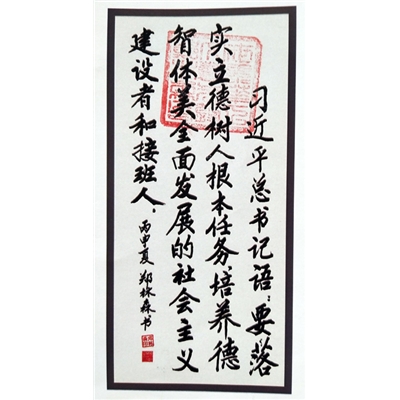 习近平总书记语：要落
实立德树人根本任务，培养德
智体美全面发展的社会主义
建设者和接班人。
丙申夏 郑林森书